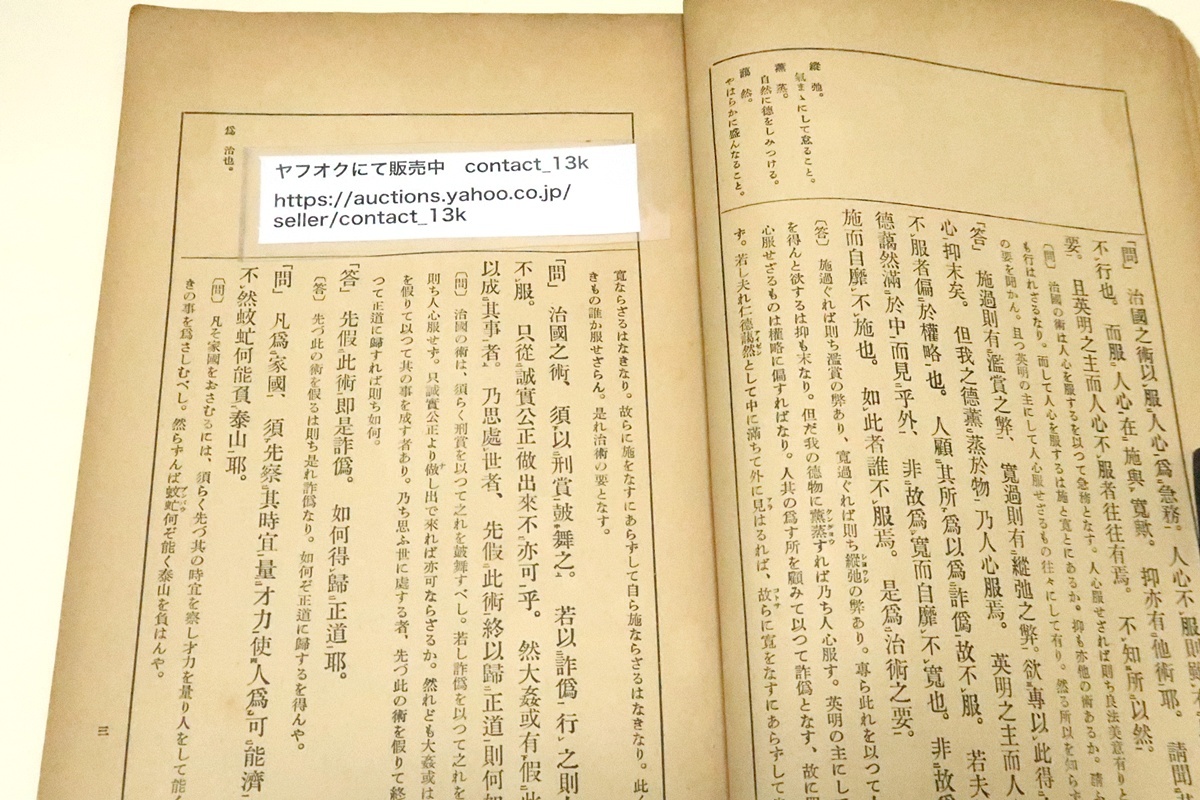 縱弛。
氣まゝにして怠ること。
薰蒸。
自然に德をしみつける。
藹然。
やはらかに盛んなること。
「問」 治國之術以服人心爲急務。人心不服則
不行也。而服人心在施與寬歟。抑亦有他術耶。請聞
要。且英明之主而人心不服者往往有焉。不知所以然。
〔問〕 治國の術は人心を服するを以つて急務となす。人心服せざれば則ち良法美意有りと
も行はれざるなり。而して人心を服するは施と寬とにあるか。抑も亦他の術あるか。請ふ
の要を聞かん。且つ英明の主にして人心服せざるもの往々にして有り。然る所以を知らず
「答」 施過則有濫賞之弊、寬過則有縱弛之弊。欲專以此得
心抑末矣。但我之德薰蒸於物乃人心服焉。英明之主而人
不服者偏於權略也。人顧其所爲以爲詐僞故不服。若夫
德藹然滿於中而見乎外、非故爲寬而自靡不寬也。非故
施而自靡不施也。如此者誰不服焉。是爲治術之要。
〔答〕 施過ぐれば則ち濫賞の弊あり、寬過ぐれば則ち縱弛の弊あり。專ら此れを以つて人
を得んと欲するは抑も末なり。但だ我の德物に薰蒸すれば乃ち人心服す。英明の主にして
心服せざるものは權略に偏すればなり。人其の爲す所を顧みて以つて詐僞となす、故に
ず。若し夫れ仁德藹然として中に滿ちて外に見はるれば、故らに寬をなすにあらずして
爲 治也。
ヤフオクにて販売中 contact_13k
https://auctions.yahoo.co.jp/
seller/contact_13k
寬ならざるはなきなり。故らに施をなすにあらずして自ら施ならざるはなきなり。此く
きもの誰か服せざらん。是れ治術の要となす。
「問」 治國之術、須以刑賞鼓舞之。若以詐僞行之則
不服。只從誠實公正做出來不亦可乎。然大姦或有假此
以成其事者。乃思處世者、先假此術終以歸正道則何如
〔問〕 治國の術は、須らく刑賞を以つて之れを鼓舞すべし。若し詐僞を以つて之れを
則ち人心服せず。只誠實公正より做し出で來れば亦可ならざるか。然れども大姦或は
を假りて以つて其の事を成す者あり。乃ち思ふ世に處する者、先づ此の術を假りて終
つて正道に歸すれば則ち如何。
「答」 先假此術卽是詐僞。如何得歸正道耶。
〔答〕 先づ此の術を假るは則ち是れ詐僞なり。如何ぞ正道に歸するを得んや。
「問」 凡爲家國、須先察其時宜量才力使人爲可能濟
不然蚊虻何能負泰山耶。
〔問〕 凡そ家國をおさむるには、須らく先づ其の時宜を察し才力を量り人をして能く
きの事を爲さしむべし。然らずんば蚊虻何ぞ能く泰山を負はんや。
三